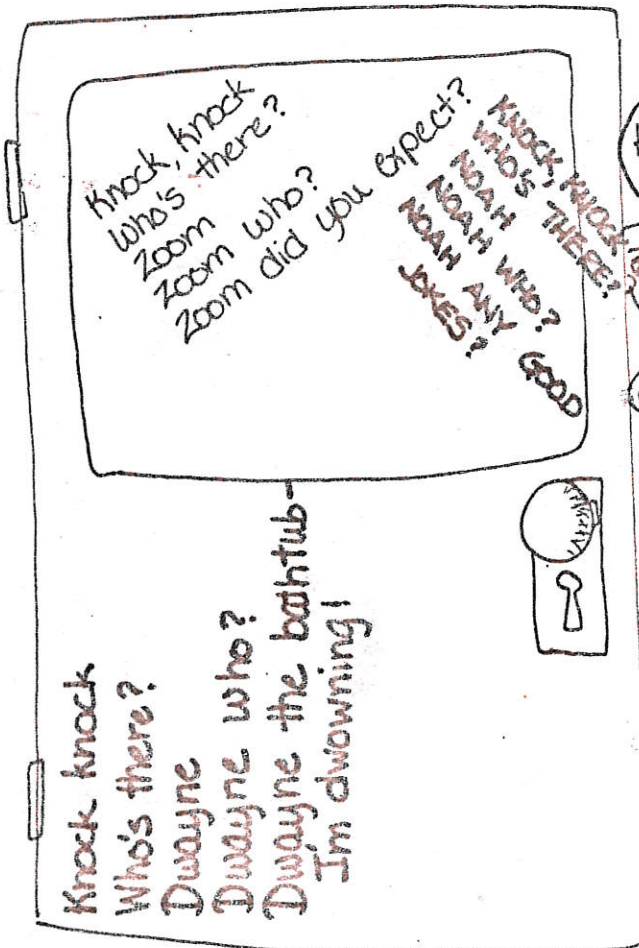 Knock, knock
Who's there?
Zoom
Zoom who?
Zoom did you expect?
KNOCK, KNOCK
WHO'S THERE?
NOAH
NOAH WHO?
NOAH ANY GOOD
JOKES?
Knock knock
Who's there?
Dwayne
Dwayne who?
Dwayne the bathtub-
I'm dwowning!